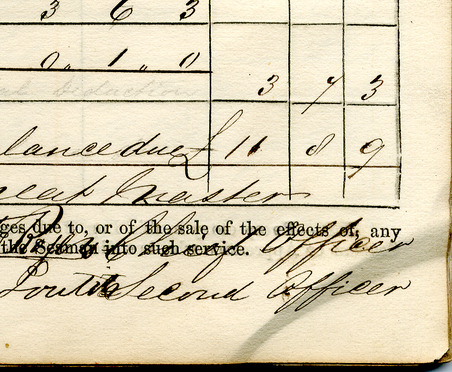 3 6 3
0 „ 1 „ 0
Deduction
3 7 3
lance due £ 11 8 9
Master
ges due to, or of the sale, of the effects of, any
Officer
the Seaman into such service.
Second Officer